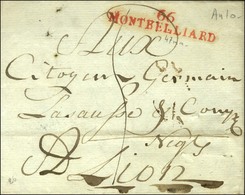 66
MONTBELLIARD
Aux
Citoyens Germain
Lasausse & Comp
Negts
Lion